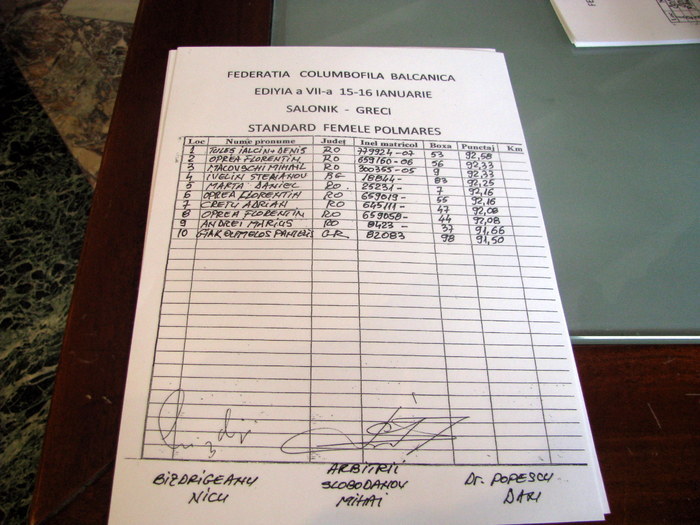 FEDERATIA COLUMBOFILA BALCANICA
EDIYIA a VII-a 15-16 IANUARIE
SALONIK - GRECI
STANDARD FEMELE POLMARES
Loc Nume pronume Judet Inel matricol Boxa Punctaj Km
1 TULES IALCIN+DENIS RO 779924-07 53 92,58
2 OPREA FLORENTIN RO 659160-06 56 92,33
3 MACOVSCHI MIHAIL RO 300355-05 9 92,33
4 IVELIN STEFANOV BG 18844- 83 92,25
5 MARTA DANIEL RO. 25231- 7 92,16
6 OPREA FLORENTIN RO 659019- 55 92,16
7 CRETU ADRIAN RO 645111- 47 92,08
8 OPREA FLORENTIN RO 659058- 44 92,08
9 ANDREI MARIUS RO 8423 - 37 91,66
10 GR 82083 98 91,50
BIZDRIGEANU
NICU
ARBITRII
SLOBODANOV
MIHAI
Dr. POPESCU
DAN